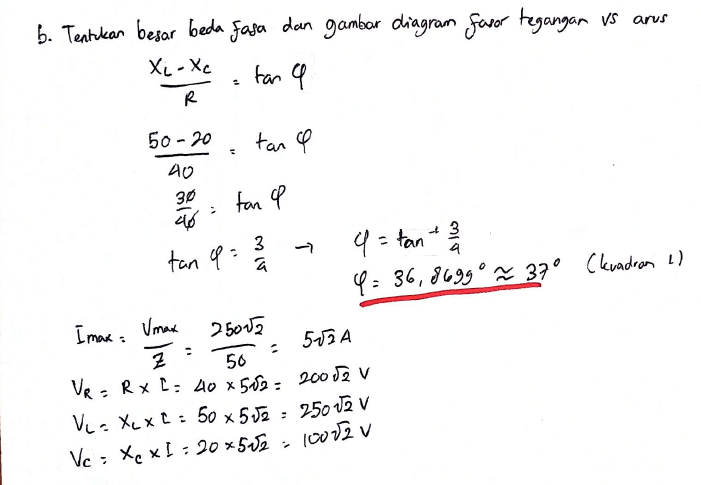 b. Tentukan besar beda fasa dan gambar diagram fasor tegangan vs arus
XL - XC / R = tan φ
50 - 20 / 40 = tan φ
30 / 40 = tan φ
tan φ = 3/4 → φ = tan⁻¹ 3/4
φ = 36,8699° ≈ 37° (kuadran 1)
Imax = Vmax / Z = 250√2 / 50 = 5√2 A
VR = R x I = 40 x 5√2 = 200√2 V
VL = XL x I = 50 x 5√2 = 250√2 V
VC = XC x I = 20 x 5√2 = 100√2 V